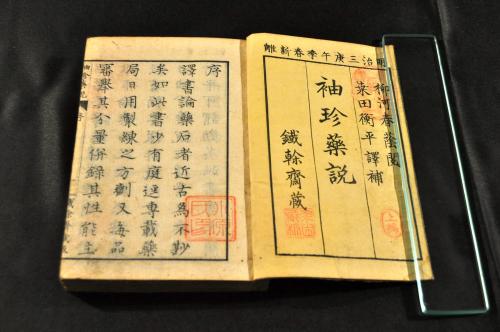 明治三庚午季春新雕
柳河春蔭閲
桒田衡平譯補
袖珍藥説
序
譯書論藥石者近古為不尠
矣如此書抄有庭逕專載藥
局日用製練之方劑又海品
審舉其分量併録其性能主